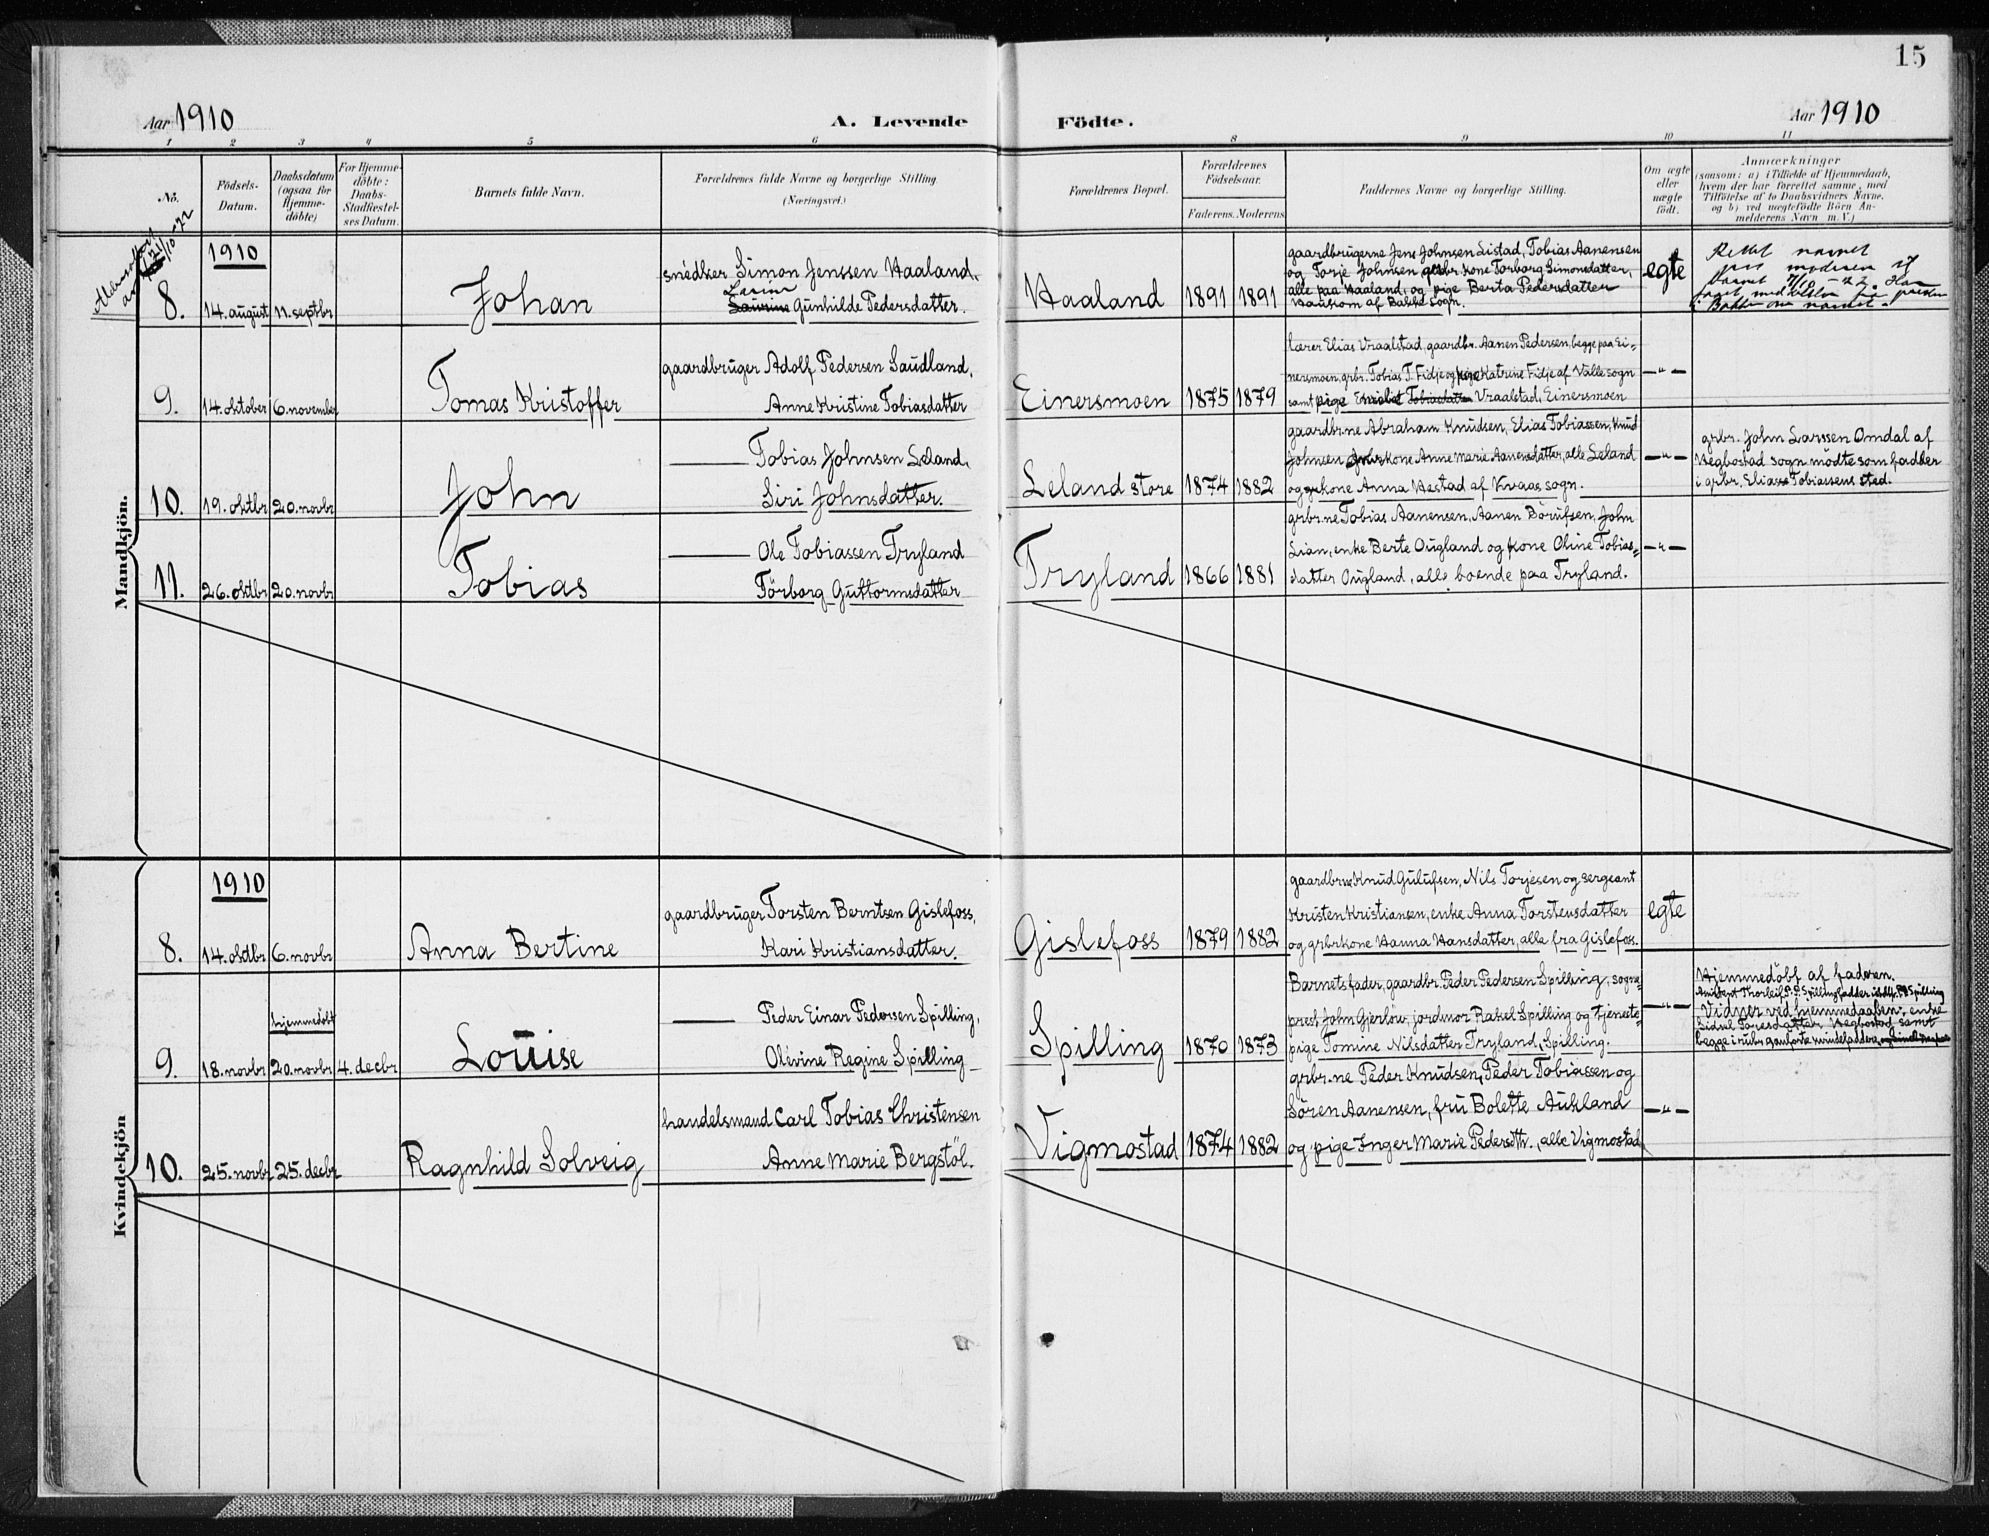 15
Aar 1910
A. Levende Födte.
Aar 1910
1 2 3 4 5 6 8 9 10 11
No.
Födsels-Datum.
Daabsdatum (ogsaa for Hjemme-döbte)
For Hjemme-döbte: Daabs-Stadfæstel-ses Datum.
Barnets fulde Navn.
Forældrenes fulde Navne og borgerlige Stilling (Næringsvei.)
Forældrenes Bopæl.
Forældrenes Födselsaar.
Faderens. Moderens.
Faddernes Navne og borgerlige Stilling.
Om ægte eller uægte födt.
Anmærkninger
(saasom: a) i Tilfælde af Hjemmedaab,
hvem der har forrettet samme, med
Tilföielse af to Daabsvidners Navne.
og b) ved uægtefödte Börn An-
melderens Navn m. V.)
Mandkjön.
1910
8. 14. august 11. septbr Johan
snedker Simon Jenssen Haaland,
Lavine
Gunhilde Pedersdatter.
Haaland 1891 1891
gaardbrugerne Jens Johnsen Listad, Tobias Aanensen
og Torje Johnsen grbr. kone Torborg Simonsdatter,
alle paa Haaland, og pige Berta Pedersdatter
Haukom af Bakke sogn.
egte
Rettet navnet
9. 14. oktober 6. november Tomas Kristoffer
gaardbruger Adolf Pedersen Saudland,
Anne Kristine Tobiasdatter
Einersmoen 1875 1879
lærer Elias Vraalstad, gaardbr. Aanen Pedersen, begge paa Ei-
nersmoen, grbr. Tobias T. Fidje og pige Katrine Fidje af Valle sogn
samt pige Tobiasdatter Vraalstad, Einersmoen
— " —
10. 19. oktbr 20. novbr John
— Tobias Johnsen Leland,
Siri Johnsdatter.
Leland store 1874 1882
gaardbr.ne Abraham Knudsen, Elias Tobiassen, Knud
Johnsen grbr kone Anne Marie Aanensdatter, alle Leland
og grkone Anna Hestad af Kvaas sogn.
— " —
grbr. John Larssen Omdal af
Hegbostad sogn mödte som fadder
i grbr. Elias Tobiassens sted.
11. 26. oktbr 20. novbr Tobias
— Ole Tobiassen Tryland
Törborg Guttormsdatter
Tryland 1866 1881
grbr.ne Tobias Aanensen, Aanen Börufsen, John
Lian, enke Berte Ougland og kone Oline Tobias-
datter Ougland, alle boende paa Tryland.
— " —
Kvindekjön
1910
8. 14. oktbr 6. novbr Anna Bertine
gaardbruger Torsten Berntsen Gislefoss,
Kari Kristiansdatter.
Gislefoss 1879 1882
gaardbr.ne Knud Gulufsen, Nils Torjesen og sergeant
Kristen Kristiansen, enke Anna Torstensdatter
og grbrkone Hanna Hansdatter, alle fra Gislefoss.
egte
9. 18. novbr hjemmedöbt 20. novbr 4. decbr Louise
— Peder Einar Pedersen Spilling,
Olevine Regine Spilling
Spilling 1870 1873
Barnets fader, gaardbr. Peder Pedersen Spilling, sogne-
prest John Gjerlöw, jordmor Rakel Spilling og tjeneste-
pige Tomine Nilsdatter Tryland, Spilling.
— " —
Hjemmedöbt af faderen.
Vidner ved hjemmedaaben: enke
Sidsel Toresdatter Hegbostad samt
10. 25. novbr 25. decbr Ragnhild Solveig
handelsmand Carl Tobias Christensen
Anne Marie Bergstöl.
Vigmostad 1874 1882
grbr.ne Peder Knudsen, Peder Tobiassen og
Sören Aanensen, fru Bolette Aukland
og pige Inger Marie Pedersdtr., alle Vigmostad
— " —